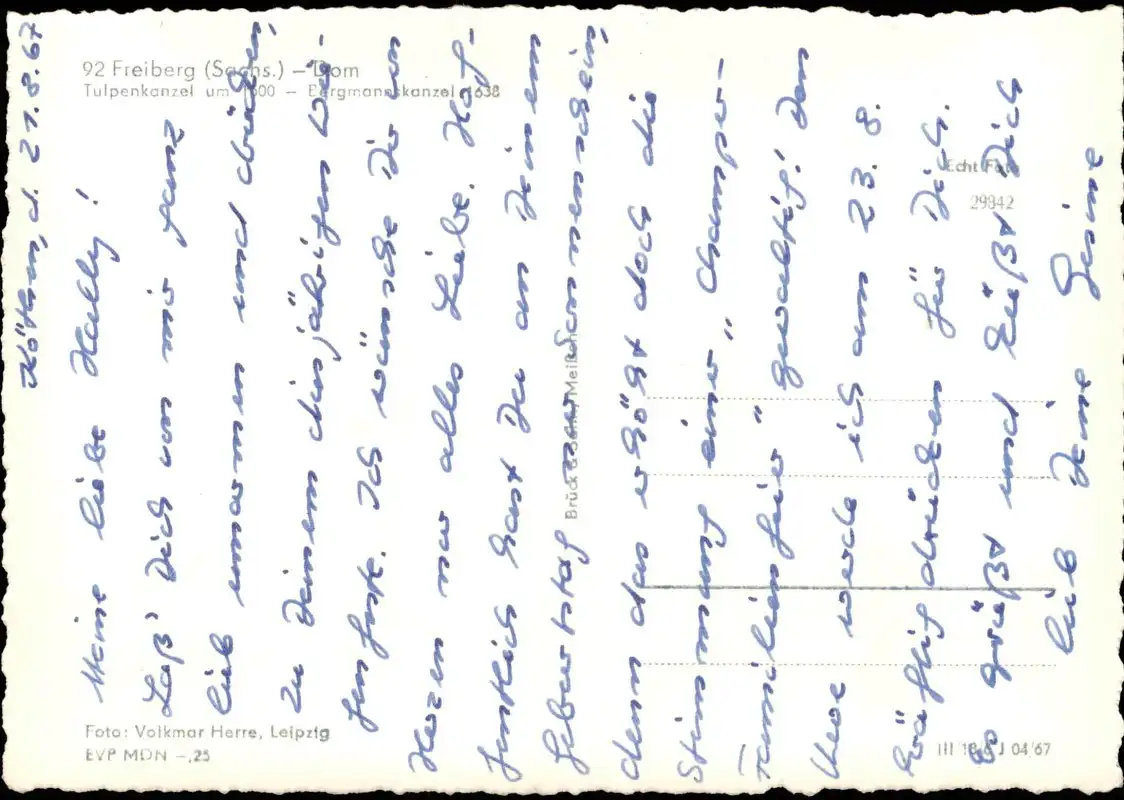 92 Freiberg (Sachs.) – Dom
Tulpenkanzel um 1500 – Bergmannskanzel 1638
Echt Foto
29842
Brück & Sohn, Meißen
Foto: Volkmar Herre, Leipzig
EVP MDN –,25
III 18 6 J 04/67
Köthen, d. 21.8.67
Meine liebe Hally!
Laß' Dich von mir ganz
lieb umarmen und drücken,
zu Deinem diesjährigen Wie-
genfeste. Ich wünsche Dir von
Herzen nur alles Liebe. Hof-
fentlich hast Du an Deinem
Geburtstag Sonnenschein,
denn das erhöht doch die
Stimmung einer „Champer-
Familienfeier" gewaltig! Den
werde ich am 23.8.
kräftig drücken für Dich.
Es grüßt und küßt Dich
lieb Deine